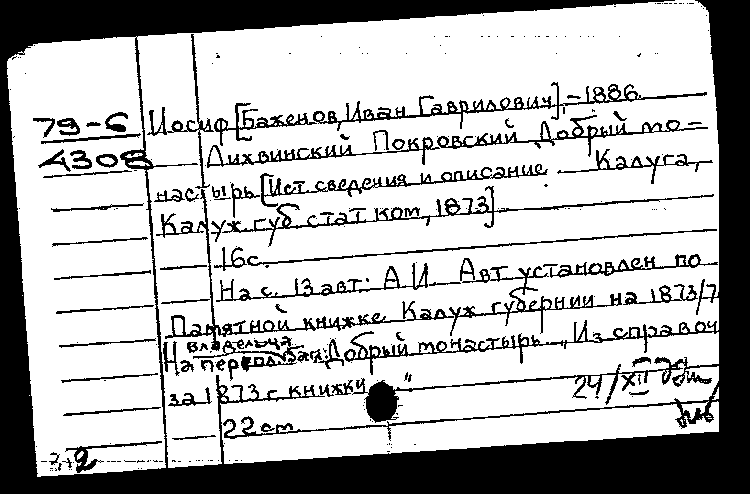 79-6 Иосиф [Баженов, Иван Гаврилович], -1886.
4308 Лихвинский Покровский Добрый мо-
настырь [Ист. сведения и описание. Калуга,
Калуж. губ. стат. ком., 1873].
16 с.
На с. 13 авт: А. И. Авт. установлен по
Памятной книжке Калуж. губернии на 1873/7
владельч.
На Добрый монастырь. „Из справоч
за 1873 г. книжки "
24/XII
22 см.